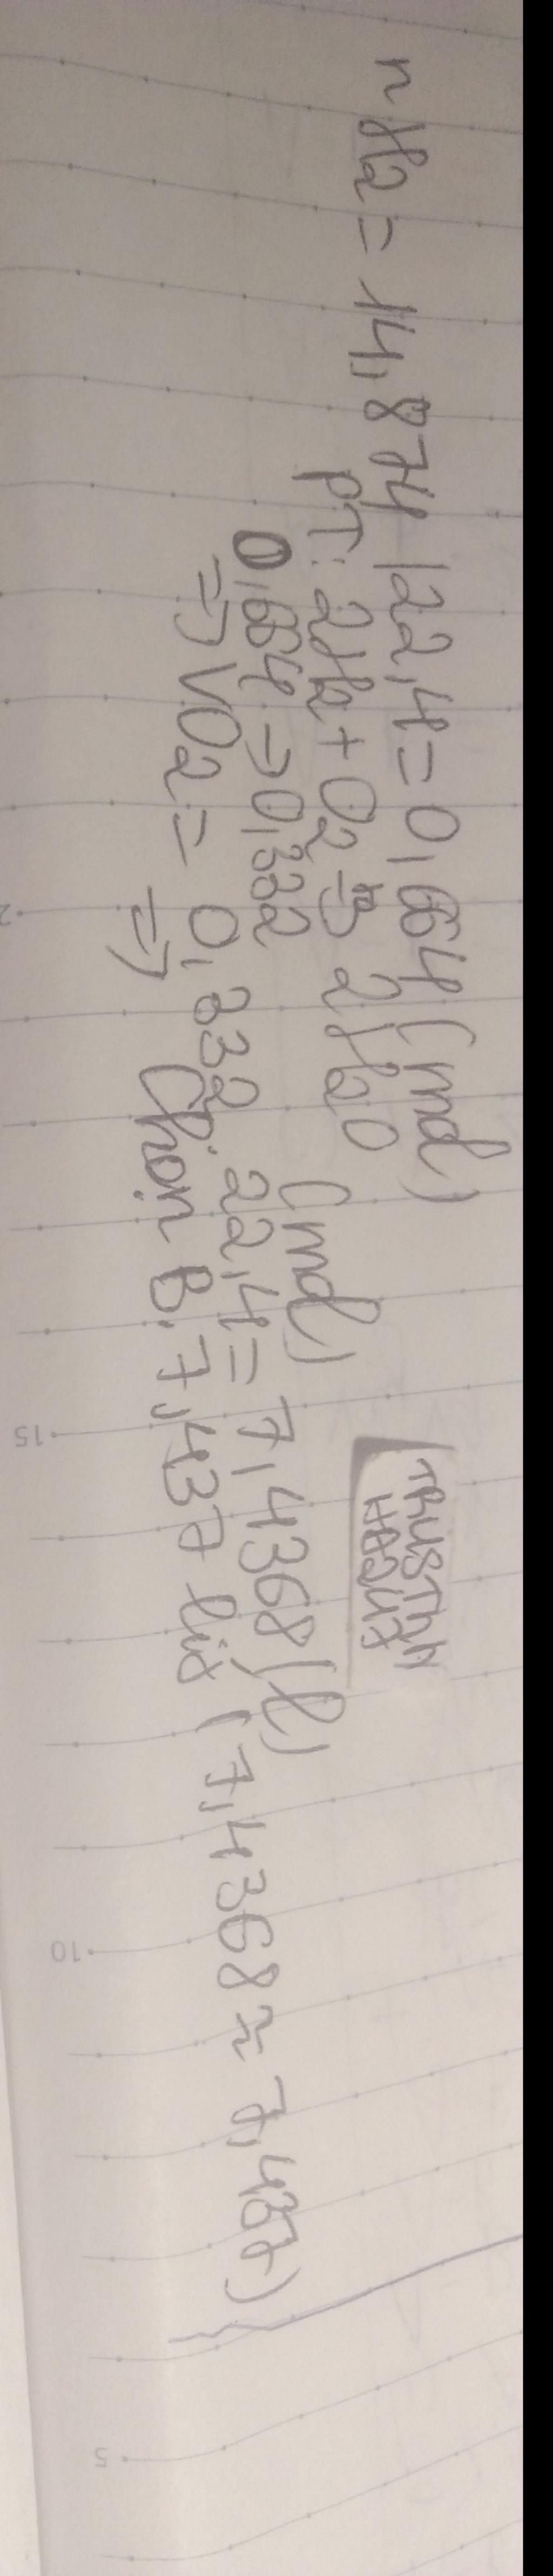 nH2 = 14,874 /22,4 = 0,664 (mol)
PT: 2H2 + O2 → 2H2O
0,664 → 0,332 (mol)
=> VO2 = 0,332. 22,4 = 7,4368 (l)
=> Chọn B. 7,437 lít (7,4368 ≈ 7,437)
TRUSTnh
H0247
15
10
5